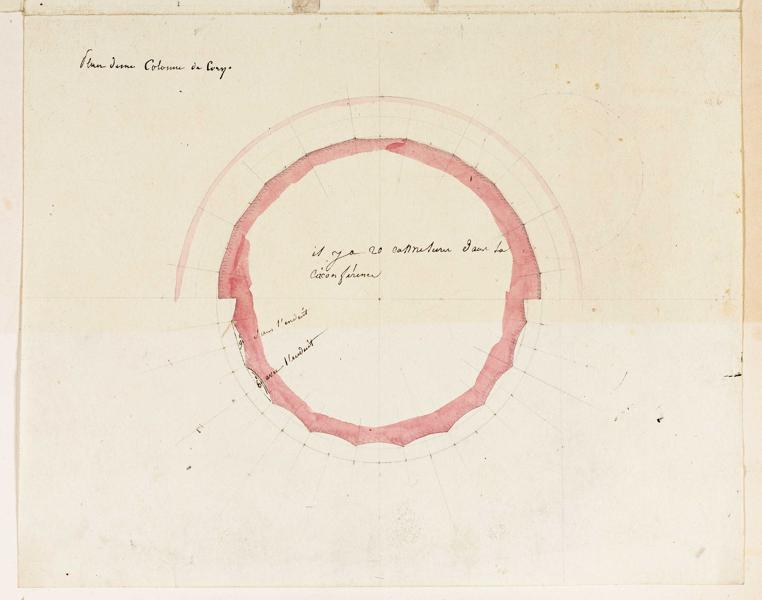 Plan d'une Colonne de Cory.
il y a 20 cannelures dans la
Circonférence
sans l'enduit
avec l'enduit